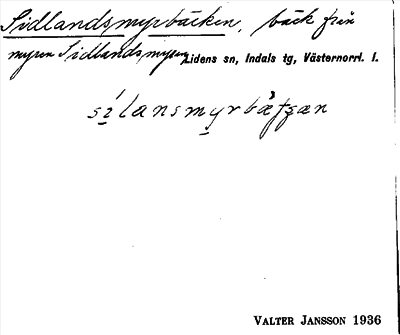 Sidlandsmyrbäcken, bäck från
myren Sidlandsmyren Lidens sn, Indals tg, Västernorrl. l.
sílansmyrbætʂæn
VALTER JANSSON 1936